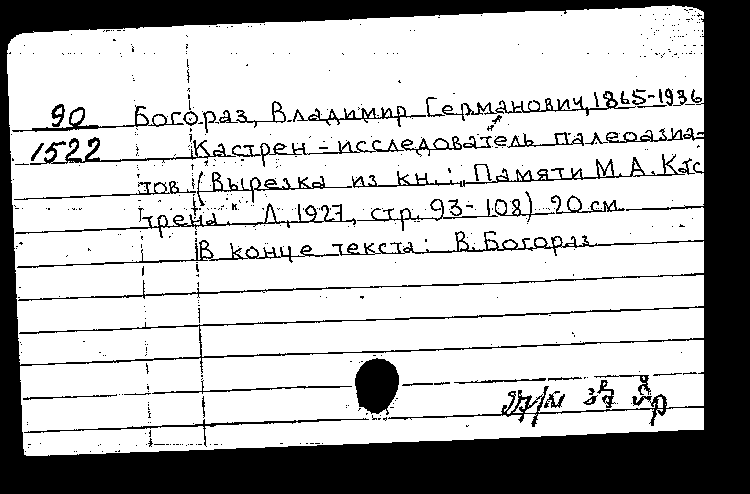 90 Богораз, Владимир Германович, 1865-1936
1522 Кастрен - исследователь палеоазиа-
тов (Вырезка из кн.: „Памяти М.А. Кас
трена." Л, 1927, стр. 93-108) 20 см.
В конце текста: В. Богораз